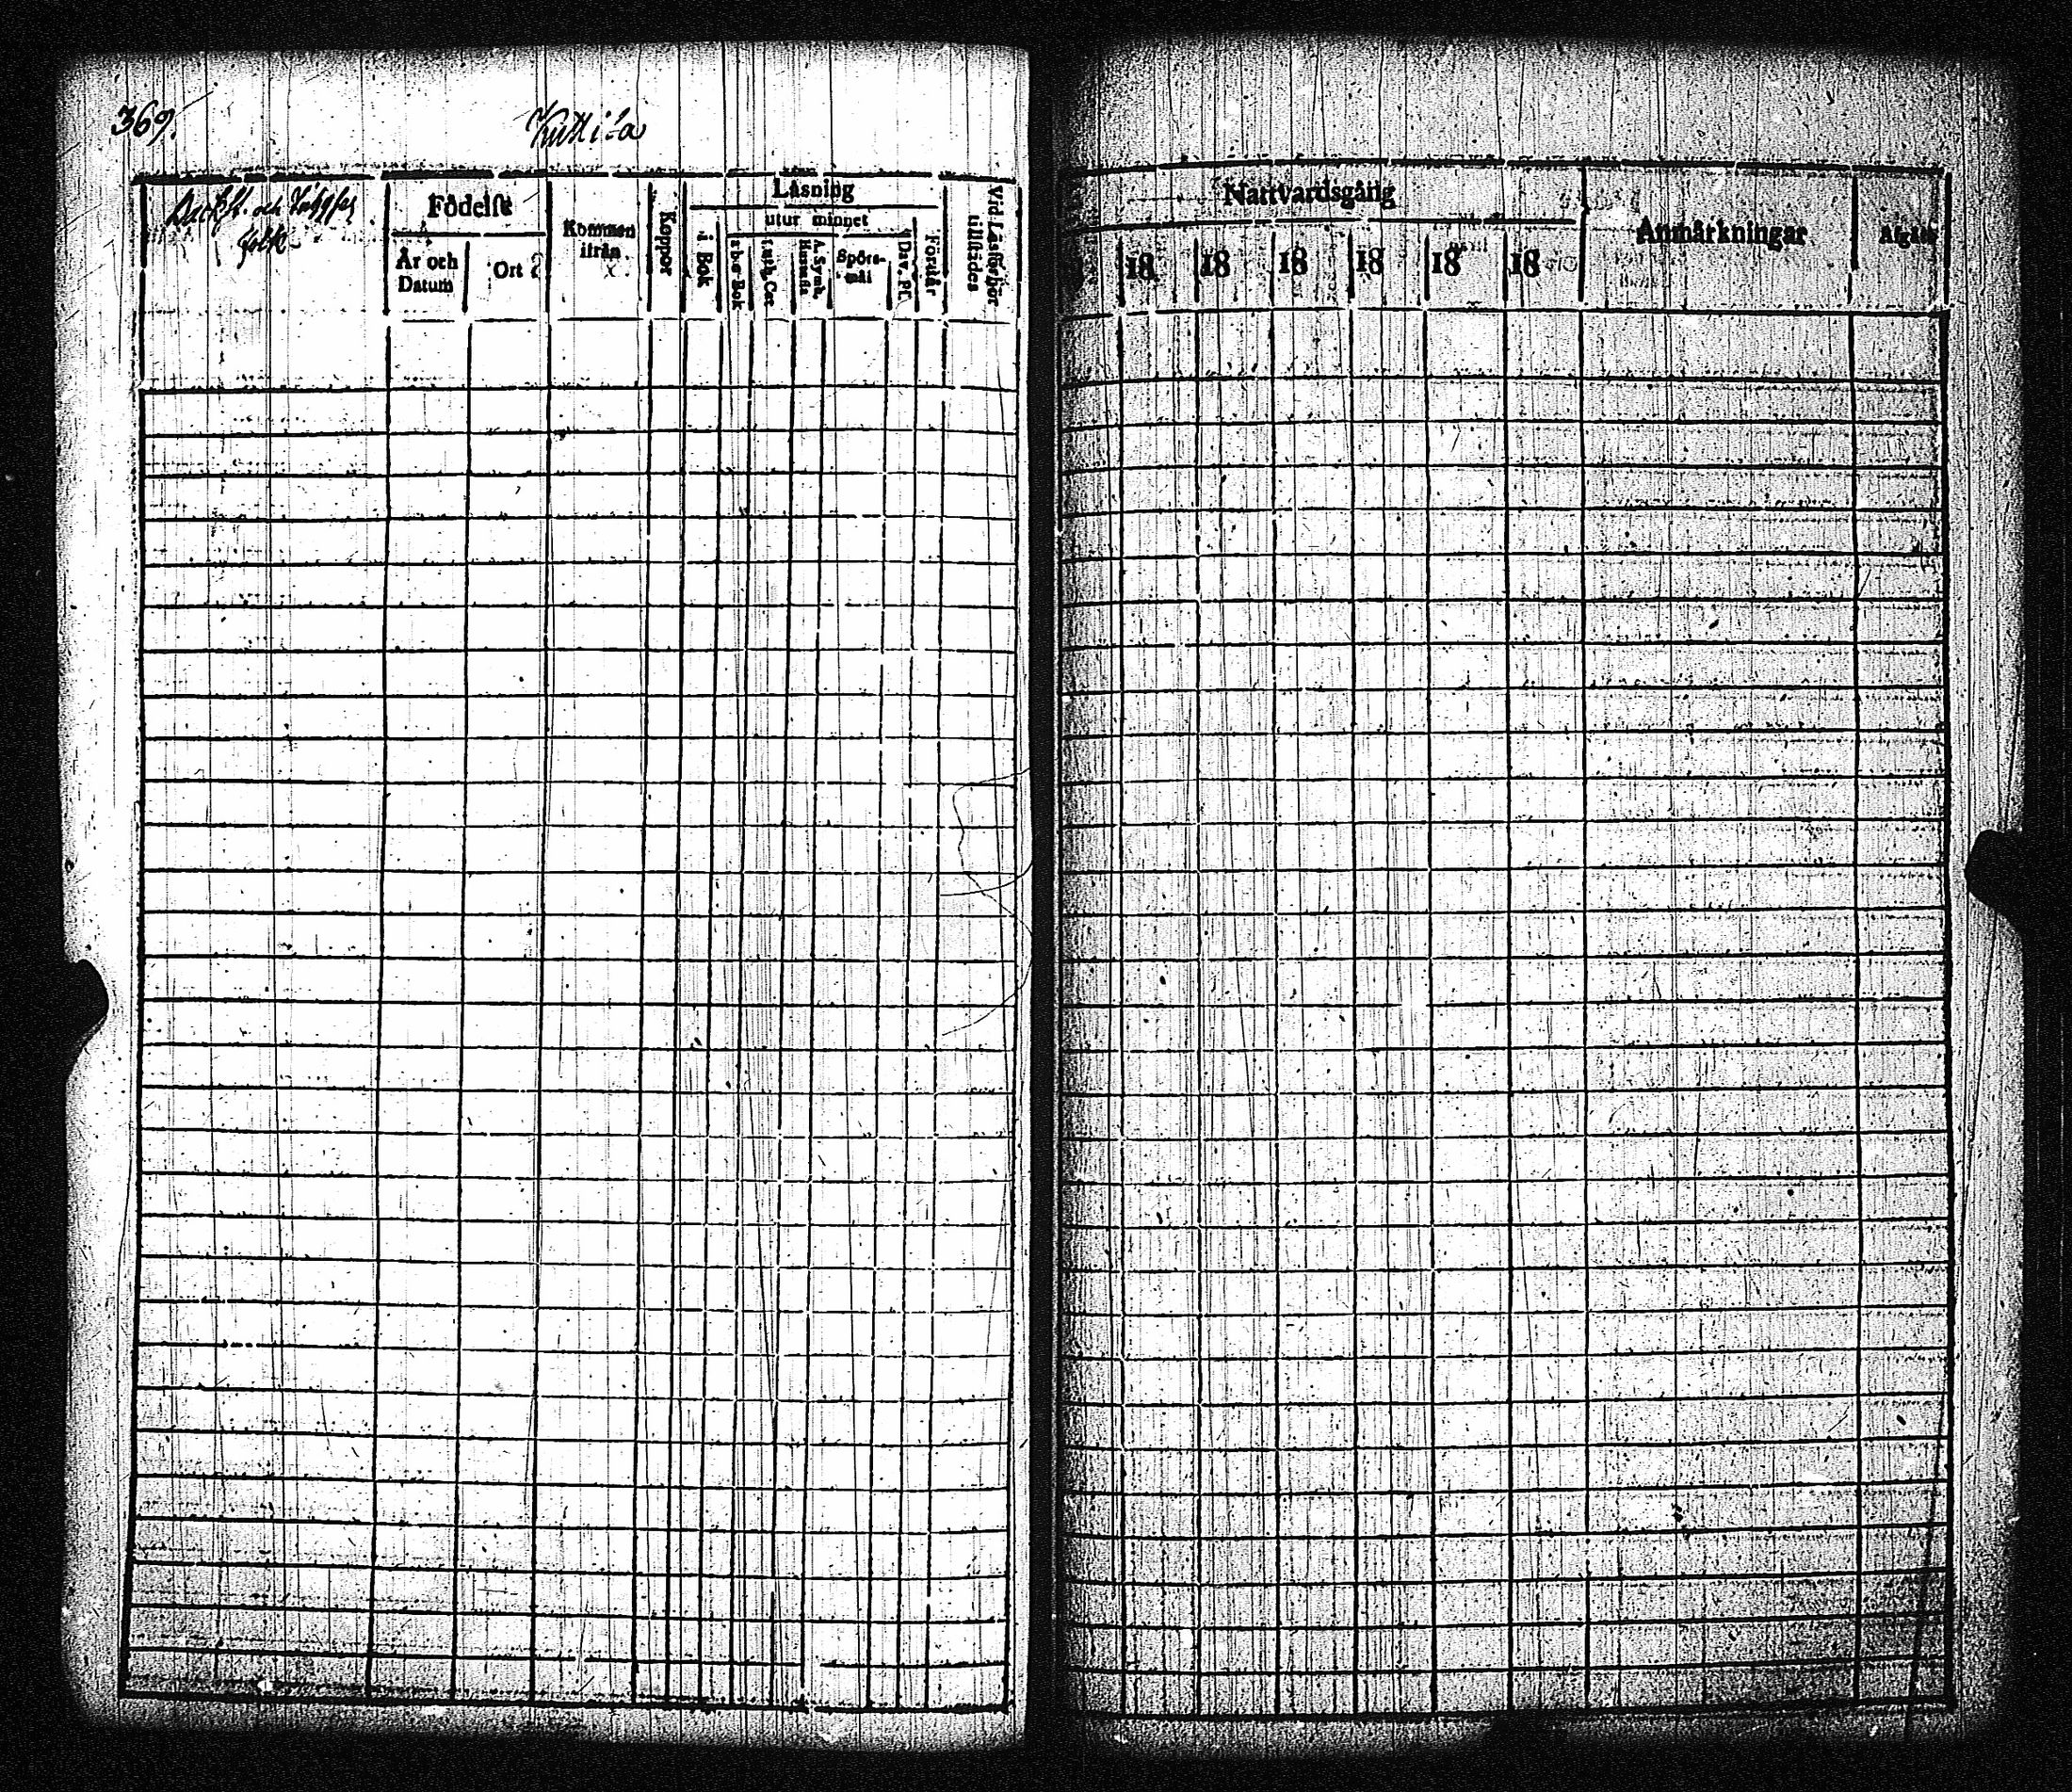 369.
Kuttila
Backst. och Inhyses
folk
Födelse
År och Datum
Ort
Kommen ifrån
Koppor
Läsning
utur minnet
i Bok
a b c Bok
Luth. Cat
A. Symb. Hustafla
Spörsmål
Dav. Ps.
Förstår
Vid Läsförhör tillstädes
Nattvardsgång
18 18 18 18 18 18
Anmärkningar
Afgått